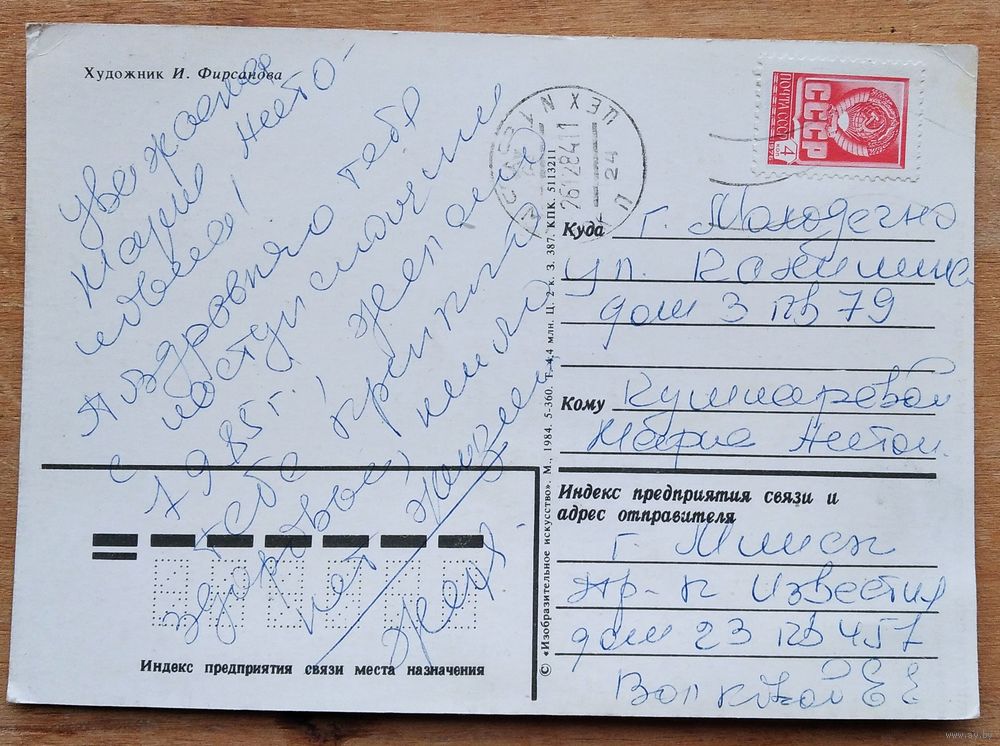 Художник И. Фирсанова
Уважаемая
Мария Анто-
новна!
Поздравляю тебя
с наступающим
1985 г.! Желаю
тебе крепкого
здоровья,
лет жизни.
Женя.
ПОЧТА СССР
СССР
4 коп
ЦЕХ N
26128411
24
П
© «Изобразительное искусство». М., 1984. 5-360. Т. 4,4 млн. Ц. 2 к. З. 387. КПК. 5113211
Куда г. Молодечно
ул.
дом 3 кв 79
Кому
Мария Антон.
Индекс предприятия связи и
адрес отправителя
г. Минск
пр-к Известия
дом 23 кв 457
Е Е
Индекс предприятия связи места назначения
www.ay.by